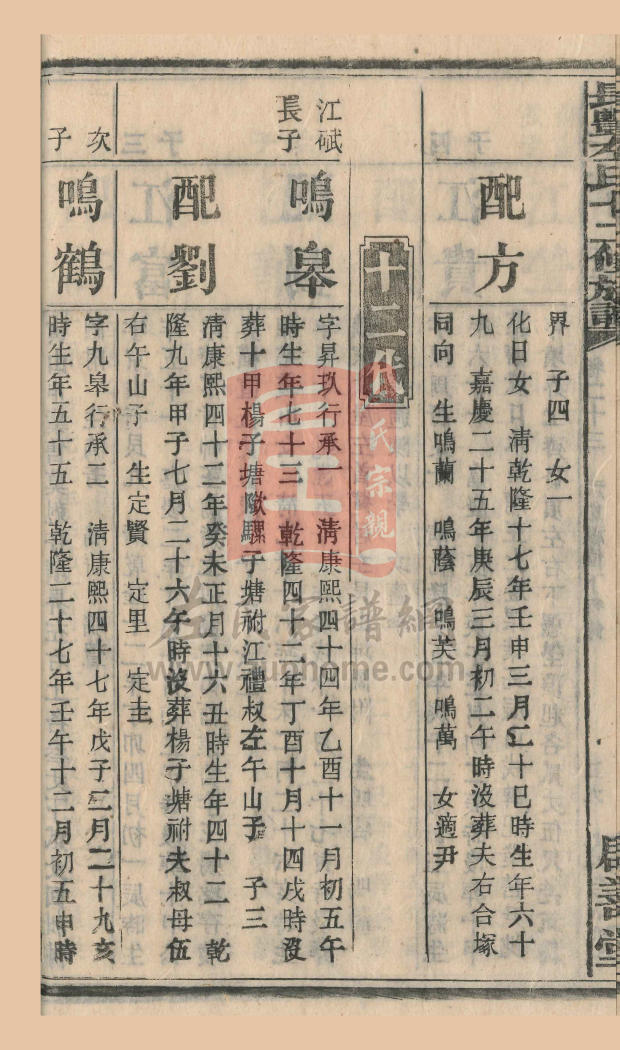 長豐左氏十二修族譜
居善堂
界 子四 女一
配方
化日女 清乾隆十七年壬申三月二十巳時生年六十
九 嘉慶二十五年庚辰三月初二午時沒葬夫右合塚
同向 生鳴蘭 鳴蔭 鳴芙 鳴萬 女適尹
十二代
江斌
長子
鳴皋
字昇玖行承一 清康熙四十四年乙酉十一月初五午
時生年七十三 乾隆四十二年丁酉十月十四戌時沒
葬十甲楊子塘 騾子塘祔江禮叔左午山子 子三
配劉
清康熙四十二年癸未正月十六丑時生年四十二 乾
隆九年甲子七月二十六午時沒葬楊子塘祔夫叔母伍
右午山子 生定賢 定里 定圭
次
子
鳴鶴
字九皋行承二 清康熙四十七年戊子三月二十九亥
時生年五十五 乾隆二十七年壬午十二月初五申時
氏宗親
名氏家譜網
www.zunhome.com